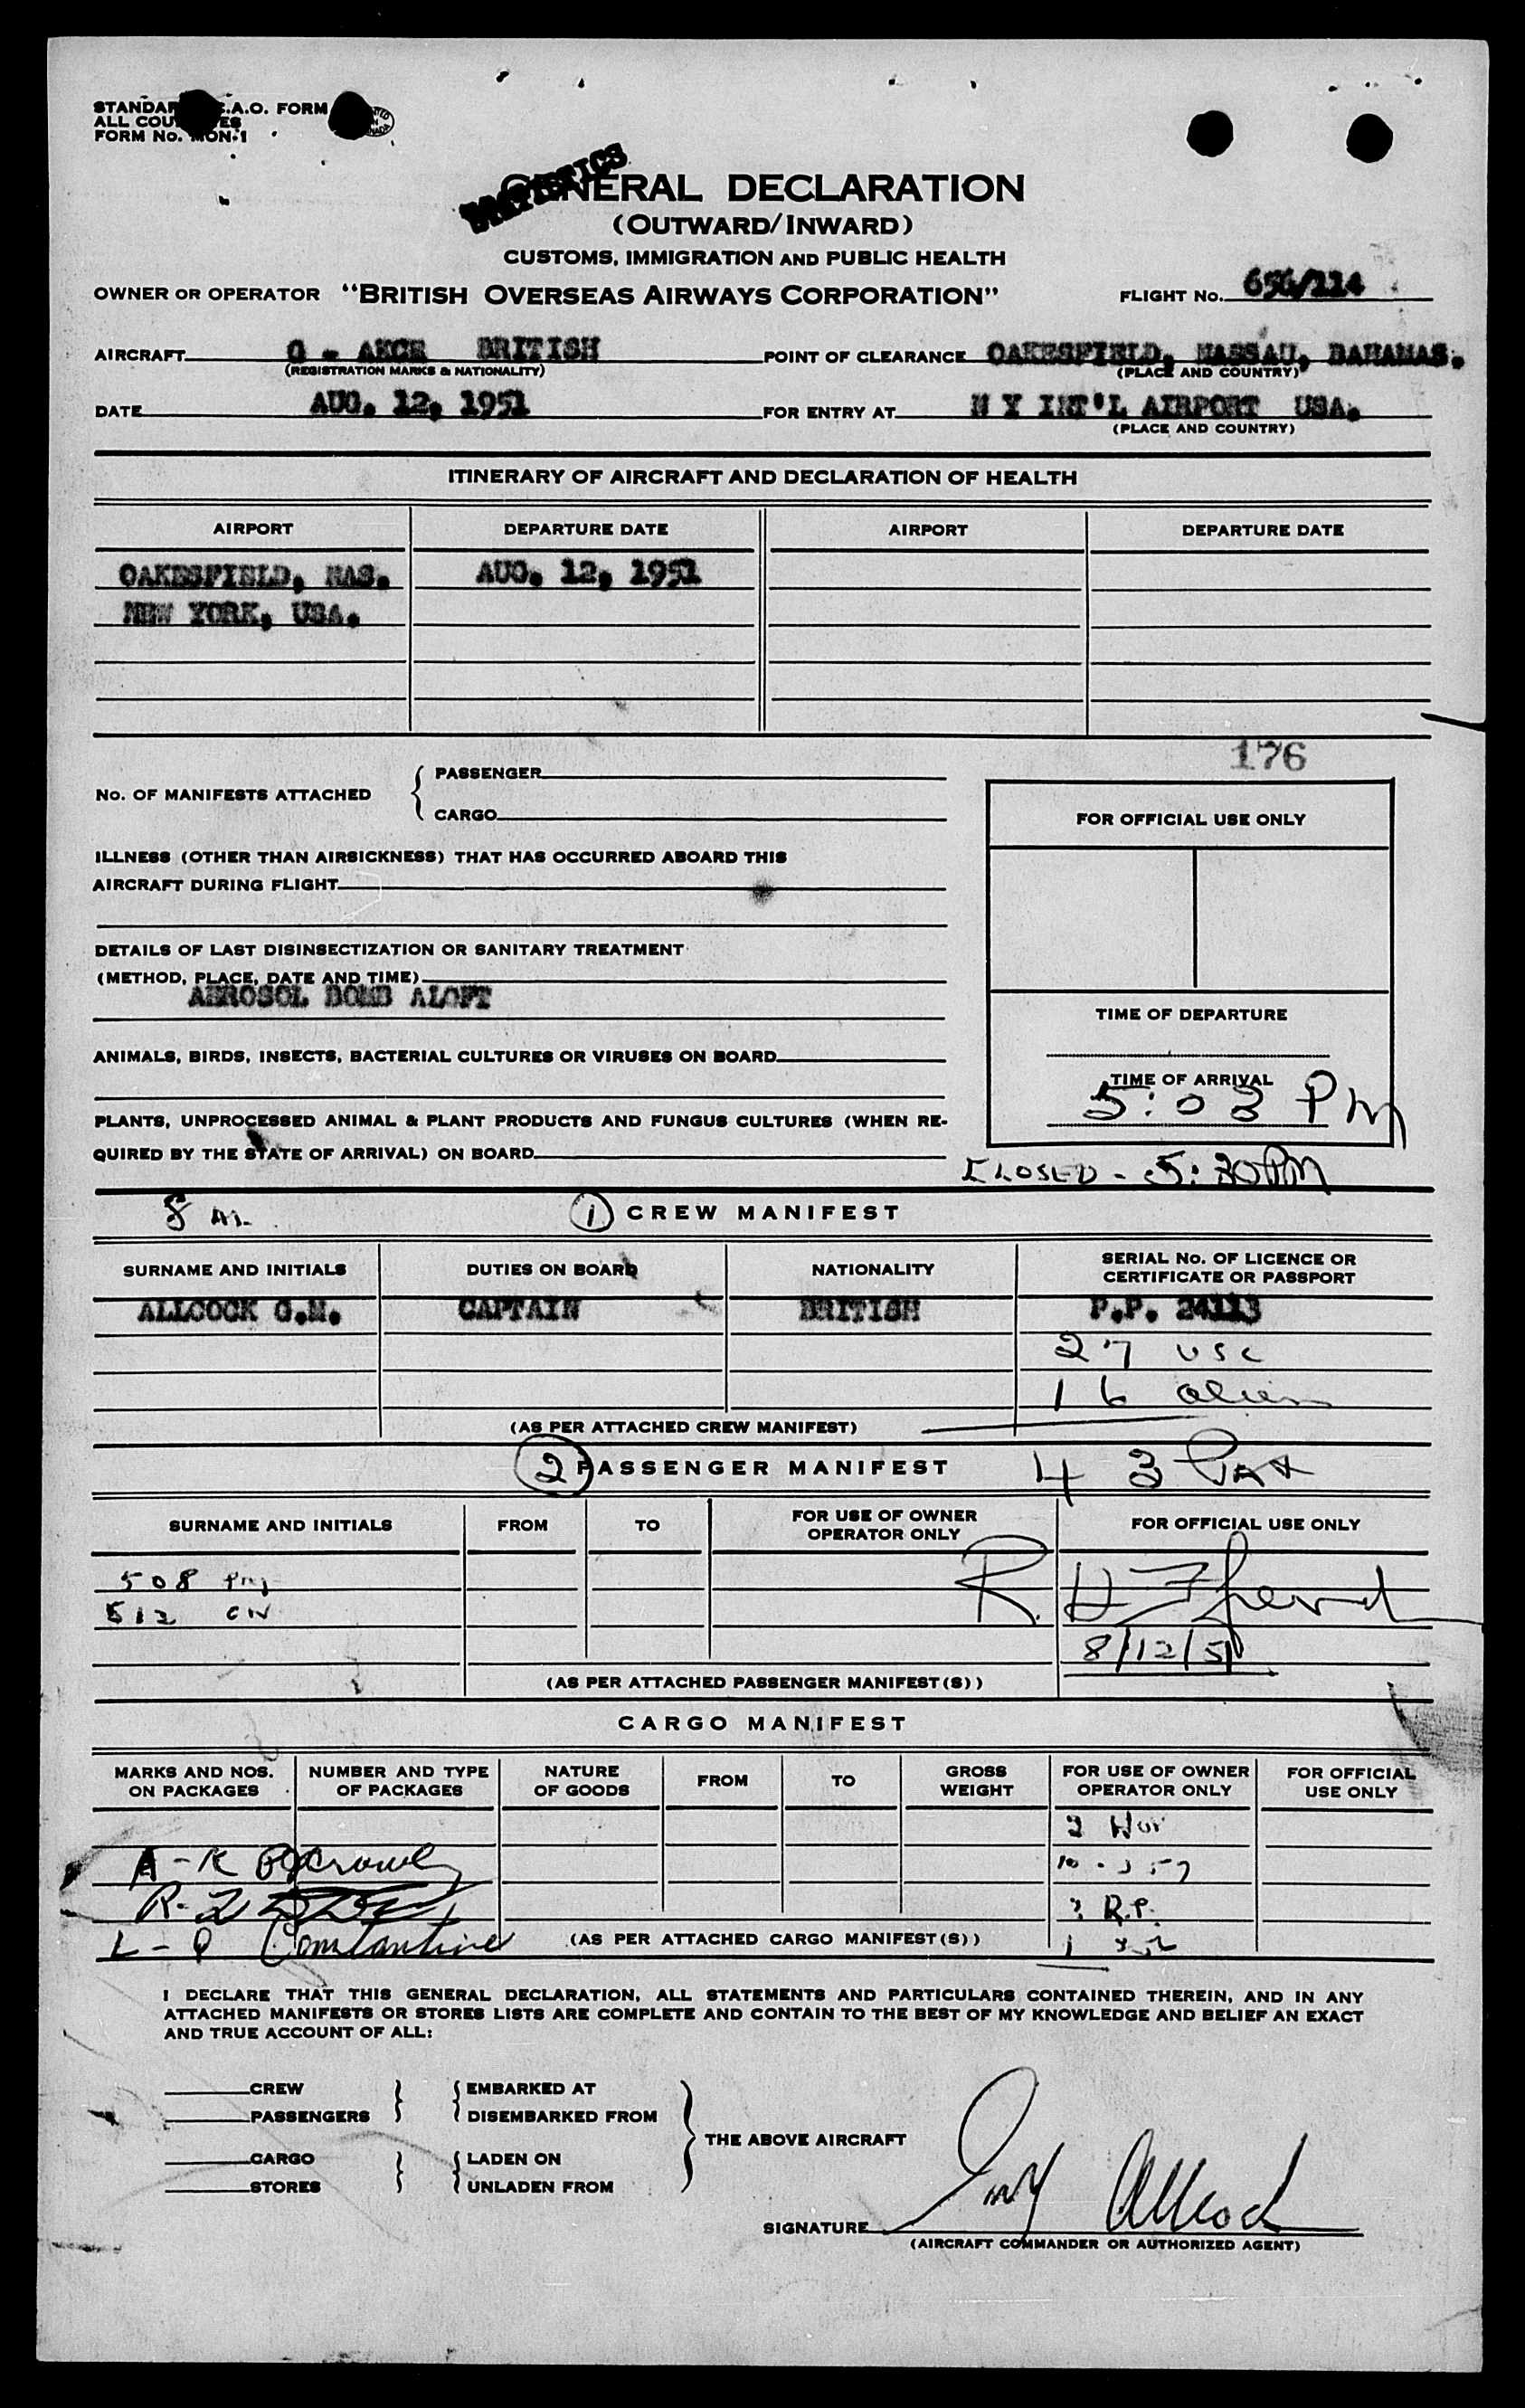 STANDARD I.C.A.O. FORM
ALL COUNTRIES
FORM No. MON-1
STATISTICS
GENERAL DECLARATION
(OUTWARD/INWARD)
CUSTOMS, IMMIGRATION AND PUBLIC HEALTH
OWNER OR OPERATOR "BRITISH OVERSEAS AIRWAYS CORPORATION" FLIGHT No. 656/114
AIRCRAFT G - AKCE BRITISH POINT OF CLEARANCE OAKESFIELD, NASSAU, BAHAMAS.
(REGISTRATION MARKS & NATIONALITY) (PLACE AND COUNTRY)
DATE AUG. 12, 1951 FOR ENTRY AT N Y INT'L AIRPORT USA.
(PLACE AND COUNTRY)
ITINERARY OF AIRCRAFT AND DECLARATION OF HEALTH
AIRPORT DEPARTURE DATE AIRPORT DEPARTURE DATE
OAKESFIELD, NAS. AUG. 12, 1951
NEW YORK, USA.
176
No. OF MANIFESTS ATTACHED { PASSENGER
CARGO
FOR OFFICIAL USE ONLY
ILLNESS (OTHER THAN AIRSICKNESS) THAT HAS OCCURRED ABOARD THIS
AIRCRAFT DURING FLIGHT
DETAILS OF LAST DISINSECTIZATION OR SANITARY TREATMENT
(METHOD, PLACE, DATE AND TIME)
AEROSOL BOMB ALOFT
TIME OF DEPARTURE
ANIMALS, BIRDS, INSECTS, BACTERIAL CULTURES OR VIRUSES ON BOARD
TIME OF ARRIVAL
5:03 PM
PLANTS, UNPROCESSED ANIMAL & PLANT PRODUCTS AND FUNGUS CULTURES (WHEN RE-
QUIRED BY THE STATE OF ARRIVAL) ON BOARD
CLOSED - 5:30PM
8 1 CREW MANIFEST
SURNAME AND INITIALS DUTIES ON BOARD NATIONALITY SERIAL No. OF LICENCE OR
CERTIFICATE OR PASSPORT
ALLCOCK G.M. CAPTAIN BRITISH P.P. 24113
27 USC
16 alien
(AS PER ATTACHED CREW MANIFEST)
2 PASSENGER MANIFEST 43 Pax
SURNAME AND INITIALS FROM TO FOR USE OF OWNER
OPERATOR ONLY FOR OFFICIAL USE ONLY
508
512
R. H.
8/12/51
(AS PER ATTACHED PASSENGER MANIFEST(S))
CARGO MANIFEST
MARKS AND NOS.
ON PACKAGES NUMBER AND TYPE
OF PACKAGES NATURE
OF GOODS FROM TO GROSS
WEIGHT FOR USE OF OWNER
OPERATOR ONLY FOR OFFICIAL
USE ONLY
A-K
R-Z
R.P.
L-Q Constantine (AS PER ATTACHED CARGO MANIFEST(S))
I DECLARE THAT THIS GENERAL DECLARATION, ALL STATEMENTS AND PARTICULARS CONTAINED THEREIN, AND IN ANY
ATTACHED MANIFESTS OR STORES LISTS ARE COMPLETE AND CONTAIN TO THE BEST OF MY KNOWLEDGE AND BELIEF AN EXACT
AND TRUE ACCOUNT OF ALL:
CREW EMBARKED AT
PASSENGERS DISEMBARKED FROM
THE ABOVE AIRCRAFT
CARGO LADEN ON
STORES UNLADEN FROM
SIGNATURE Allcock
(AIRCRAFT COMMANDER OR AUTHORIZED AGENT)